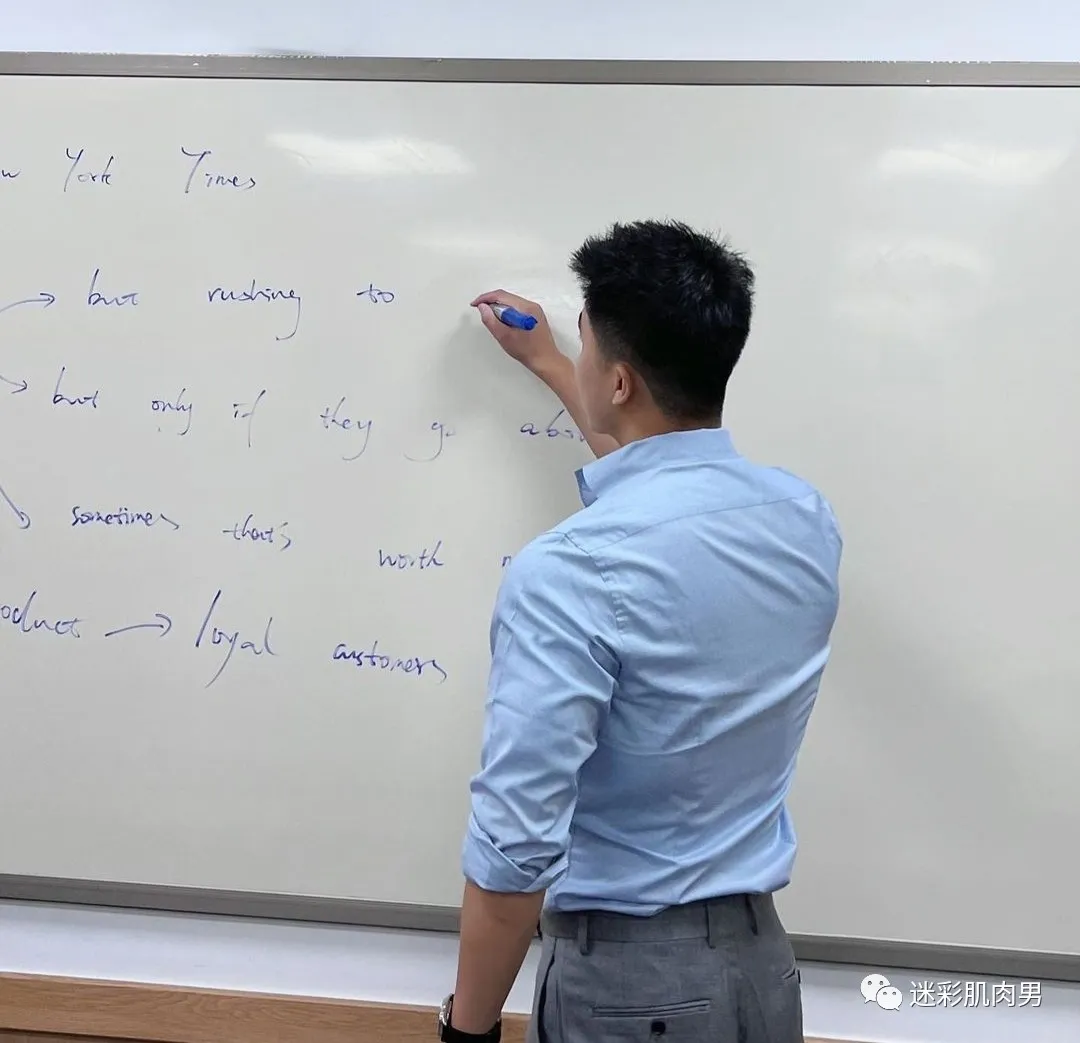 York Times
but rushing to
but only if they go
sometimes that's worth
loyal customers
迷彩肌肉男